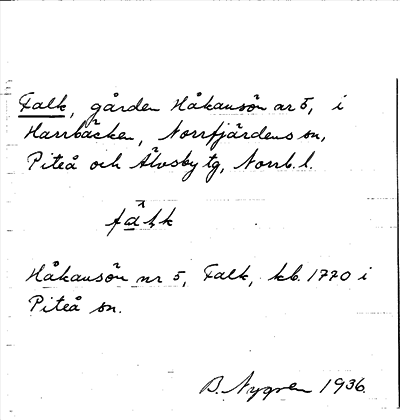 Falk, gården Håkansön nr 5, i
Harrbäcken, Norrfjärdens sn,
Piteå och Älvsby tg, Norrb. l.
fạ̈lk
Håkansön nr 5, Falk, kb. 1770 i
Piteå sn.
B. Nygren 1936.